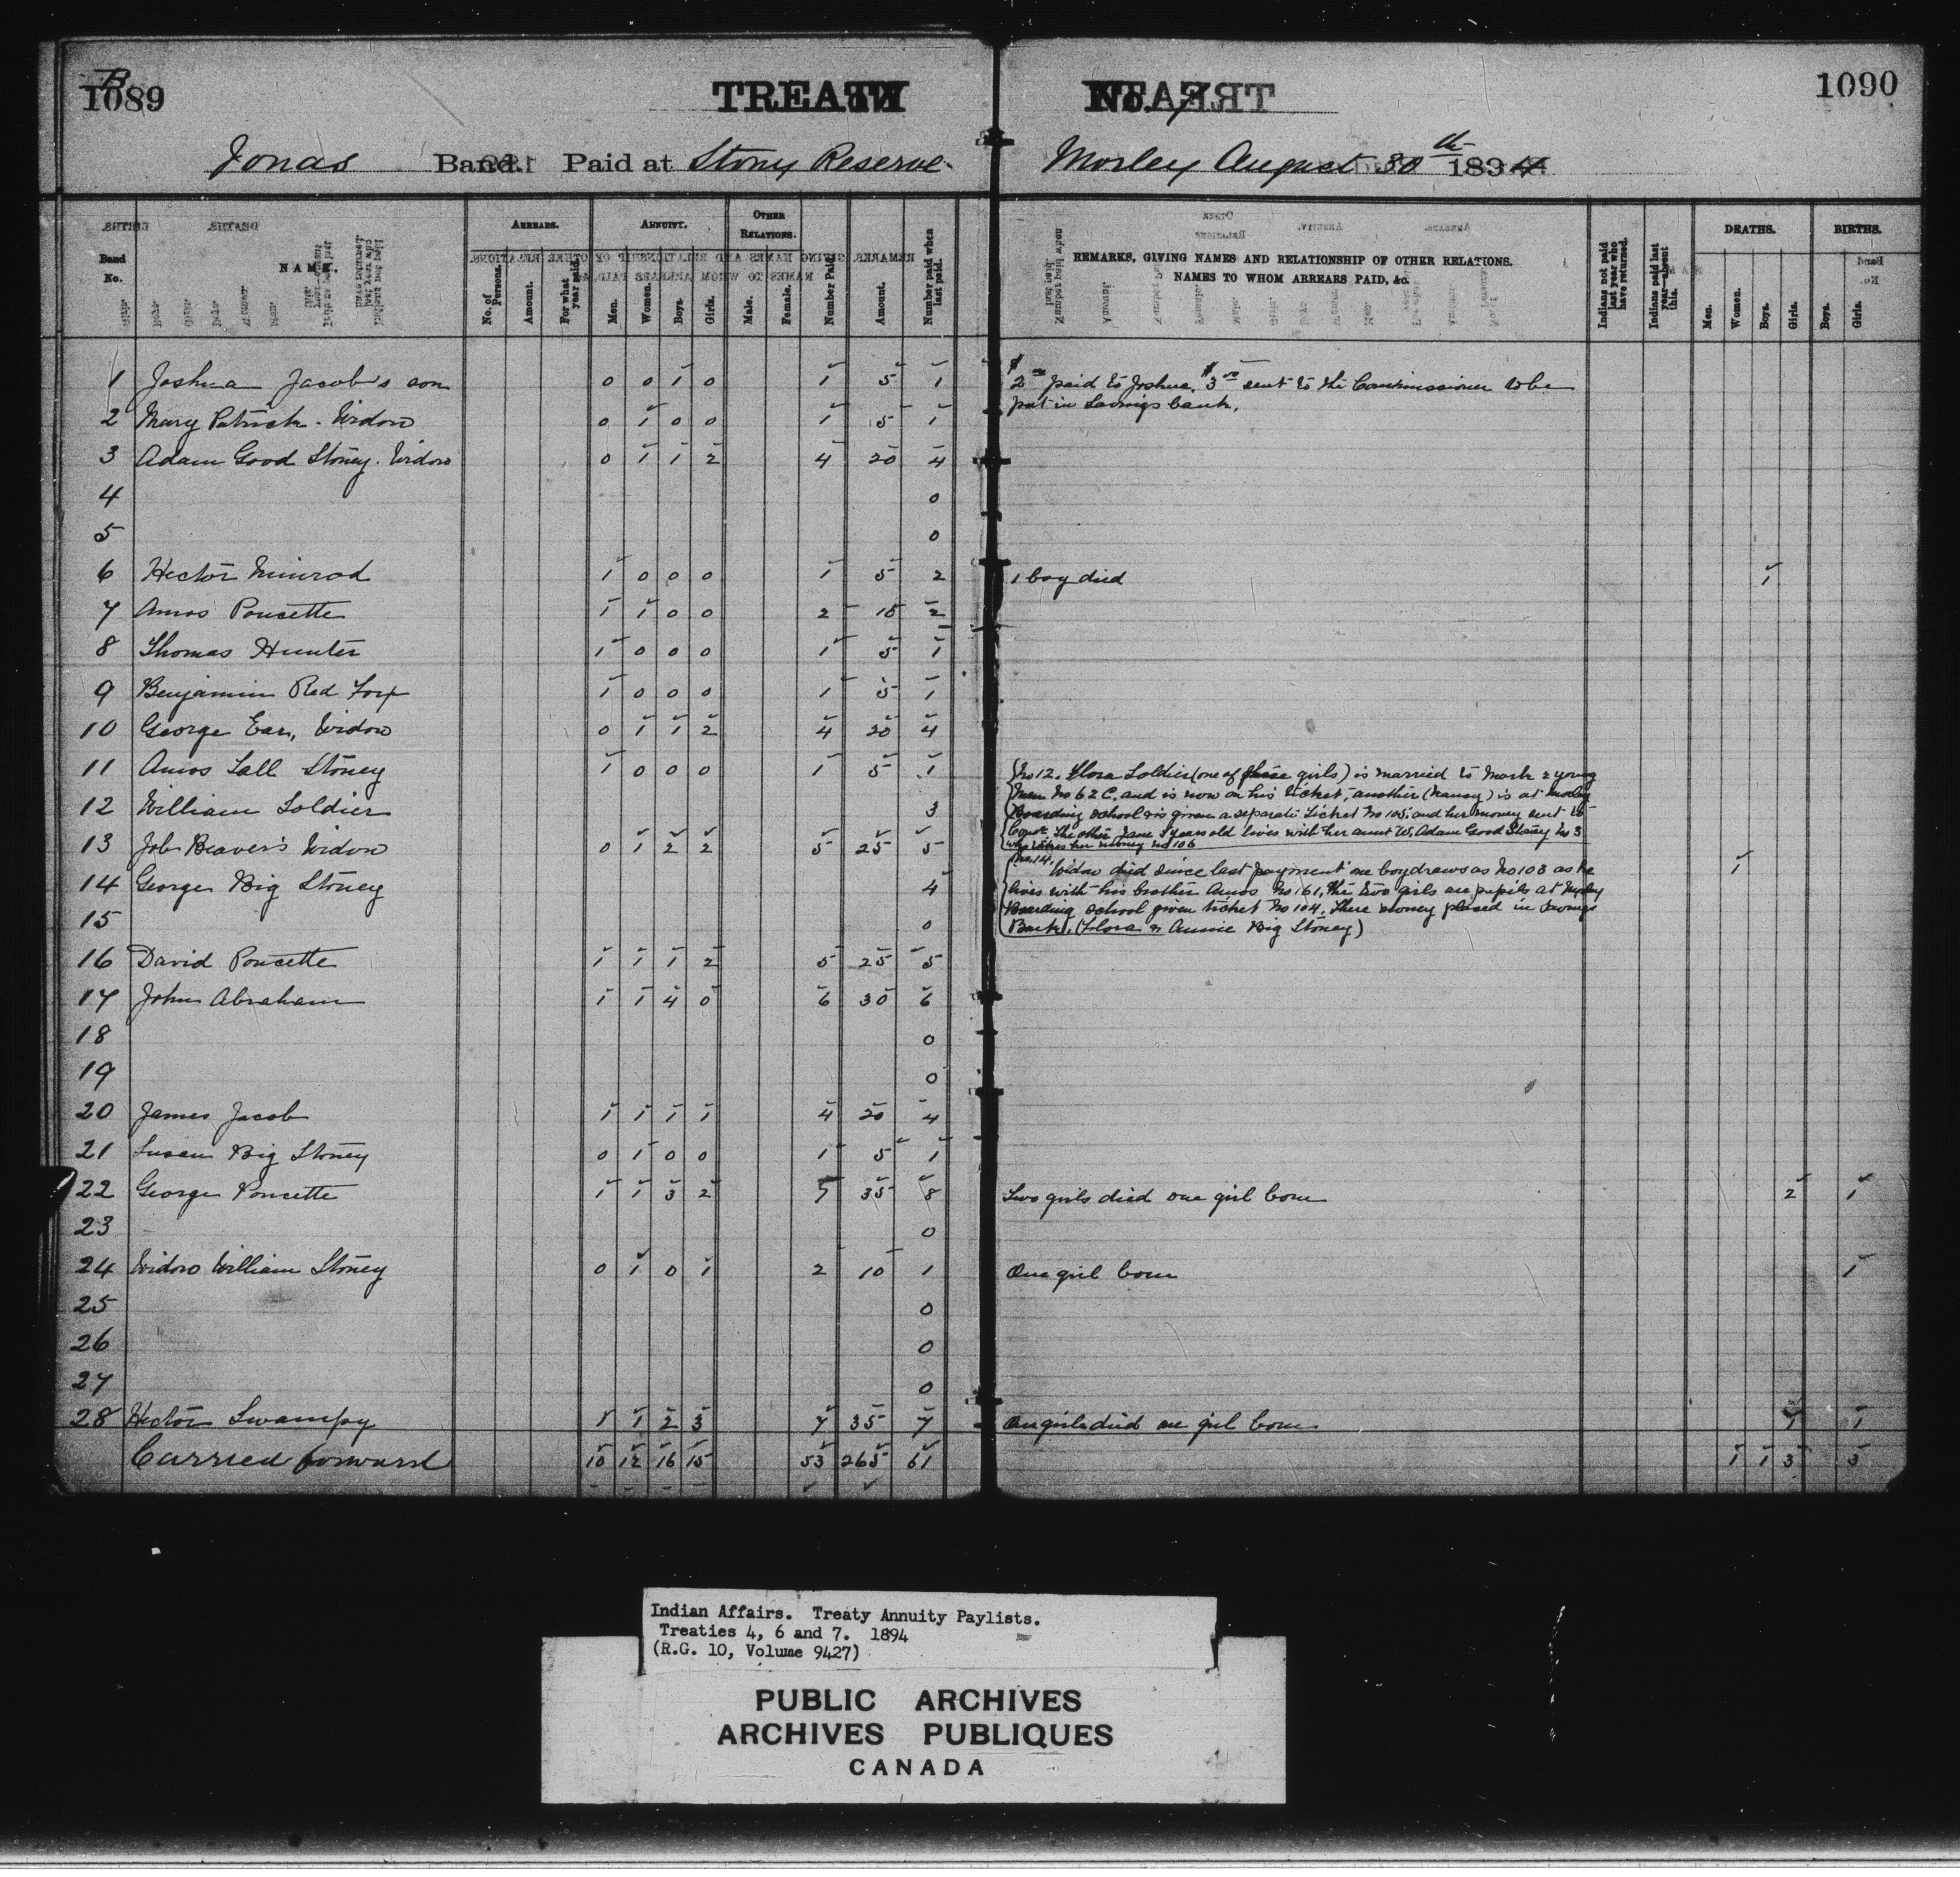 B
1089
TREATY
No. 7
1090
Jonas Band. Paid at Stony Reserve
Morley August 30th 1894
Band No.
NAME.
ARREARS.
No. of Persons.
Amount.
For what year paid.
ANNUITY.
Men.
Women.
Boys.
Girls.
OTHER RELATIONS.
Male.
Female.
Number Paid.
Amount.
Number paid when last paid.
REMARKS, GIVING NAMES AND RELATIONSHIP OF OTHER RELATIONS.
NAMES TO WHOM ARREARS PAID, &c.
Indians not paid last year who have returned.
Indians paid last year—absent this.
DEATHS.
Men.
Women.
Boys.
Girls.
BIRTHS.
Boys.
Girls.
1 Joshua Jacob's son 0 0 1 0 1 5 1 $2 00 paid to Joshua, $3 00 sent to the Commissioner to be
put in Savings bank.
2 Mary Patrick. Widow 0 1 0 0 1 5 1
3 Adam Good Stoney. Widow 0 1 1 2 4 20 4
4 0
5 0
6 Hector Nimrod 1 0 0 0 1 5 2 1 boy died 1
7 Amos Poucette 1 1 0 0 2 10 2
8 Thomas Hunter 1 0 0 0 1 5 1
9 Benjamin Red Fox 1 0 0 0 1 5 1
10 George Ear, Widow 0 1 1 2 4 20 4
11 Amos Tall Stoney 1 0 0 0 1 5 1
12 William Soldier 3
No 12. Flora Soldier (one of these girls) is married to Mark 2 young
man No 62 C. and is now on his ticket, another (Nancy) is at Morley
Boarding School & is given a separate ticket No 105, and her money sent to
Comr. The other Jane 8 years old lives with her aunt W. Adam Good Stoney No 3
who takes her money no 106
13 Job Beaver's Widow 0 1 2 2 5 25 5
14 George Big Stoney 4 1
No. 14. Widow died since last payment one boy draws as No 103 as he
lives with his brother Amos No 161, the two girls are pupils at Morley
Boarding School given ticket No 104. There money placed in Savings
Bank. (Flora & Annie Big Stoney)
15 0
16 David Poucette 1 1 1 2 5 25 5
17 John Abraham 1 1 4 0 6 30 6
18 0
19 0
20 James Jacob 1 1 1 1 4 20 4
21 Susan Big Stoney 0 1 0 0 1 5 1
22 George Poucette 1 1 3 2 7 35 8 Two girls died one girl born 2 1
23 0
24 Widow William Stoney 0 1 0 1 2 10 1 One girl born 1
25 0
26 0
27 0
28 Hector Swampy 1 1 2 3 7 35 7 One girl died one girl born 1 1
Carried forward 10 12 16 15 53 265 61 1 1 3 3
Indian Affairs. Treaty Annuity Paylists.
Treaties 4, 6 and 7. 1894
(R.G. 10, Volume 9427)
PUBLIC ARCHIVES
ARCHIVES PUBLIQUES
CANADA